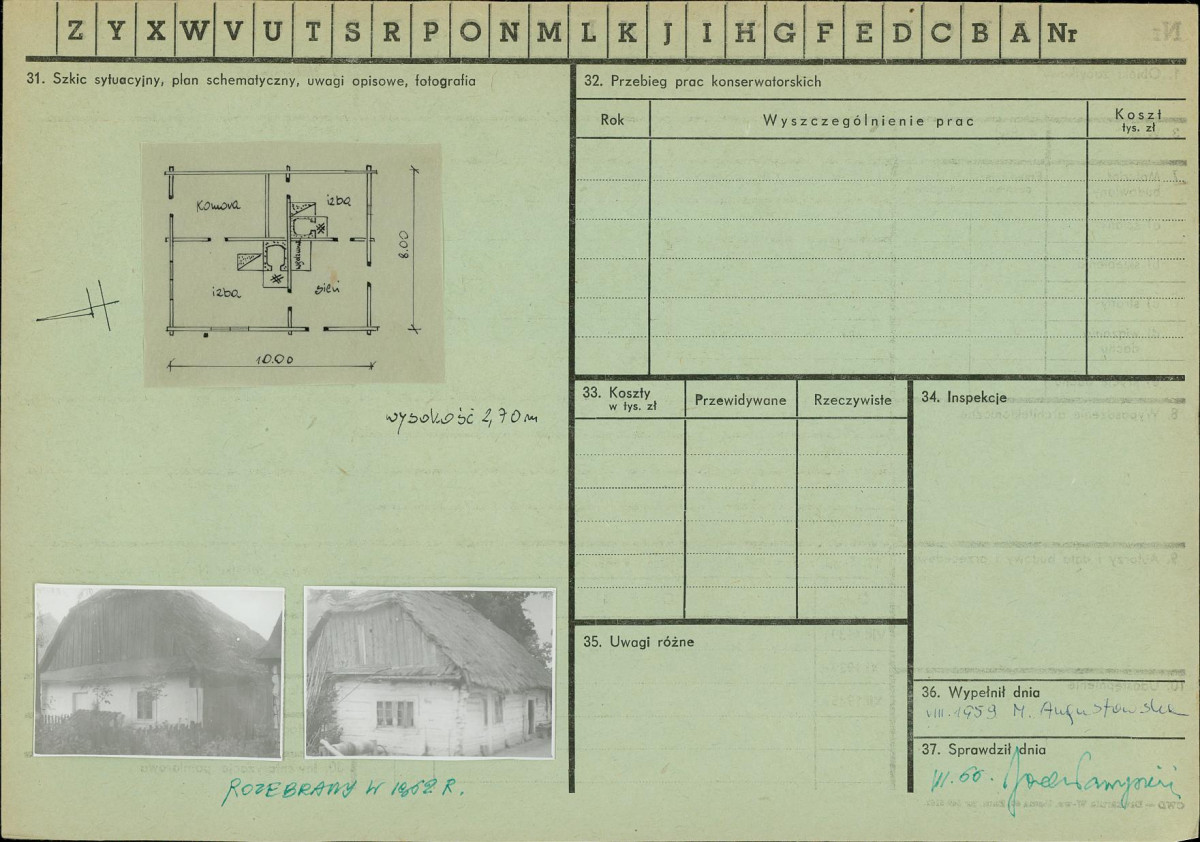 Z Y X W V U T S R P O N M L K J I H G F E D C B A Nr
31. Szkic sytuacyjny, plan schematyczny, uwagi opisowe, fotografia
Komora
izba
izba
sień
8.00
10.00
wysokość 2,70 m
ROZEBRANY W 1962 R.
32. Przebieg prac konserwatorskich
Rok
Wyszczególnienie prac
Koszt
tys. zł
33. Koszty
w tys. zł
Przewidywane
Rzeczywiste
34. Inspekcje
35. Uwagi różne
36. Wypełnił dnia
VIII. 1959 M. Augustowska
37. Sprawdził dnia